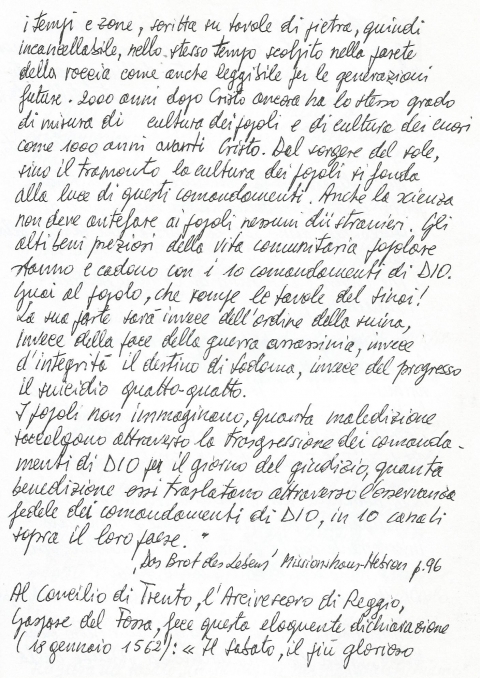 i tempi e zone, scritta su tavole di pietra, quindi
incancellabile, nello stesso tempo scolpito nella parete
della roccia come anche leggibile per le generazioni
future. 2000 anni dopo Cristo ancora ha lo stesso grado
di misura di cultura dei popoli e di cultura dei cuori
come 1000 anni avanti Cristo. Dal sorgere del sole,
sino il tramonto la cultura dei popoli si fonda
alla luce di questi comandamenti. Anche la scienza
non deve antefare ai popoli nessuni dii stranieri. Gli
alti beni preziosi della vita comunitaria popolare
stanno e cadono con i 10 comandamenti di DIO.
Guai al popolo, che rompe le tavole del Sinai!
La sua parte sarà invece dell'ordine della ruina,
invece della pace della guerra assassinia, invece
d'integrità il destino di Sodoma, invece del progresso
il suicidio quatto-quatto.
I popoli non immaginano, quanta maledizione
raccolgono attraverso la trasgressione dei comanda-
menti di DIO per il giorno del giudizio, quanta
benedizione essi traslatano attraverso l'osservanza
fedele dei comandamenti di DIO, in 10 canali
sopra il loro paese."
"Das Brot des Lebens" Missionshaus-Hebron p. 96
Al Concilio di Trento, l'Arcivescovo di Reggio,
Gaspare del Fossa, fece questa eloquente dichiarazione
(18 gennaio 1562): « Il Sabato, il più glorioso